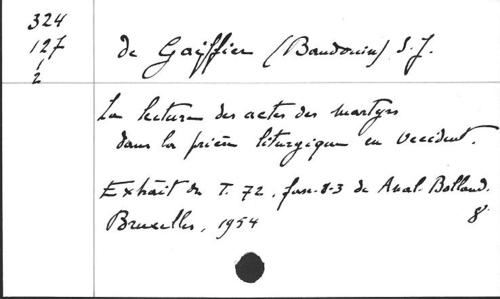 324
127
1
2
de Gaiffier (Baudouin) S. J.
La lecture des actes des martyrs
dans la prière liturgique en Occident.
Extrait du T. 72, fasc. 1-3 de Anal. Bolland.
Bruxelles, 1954 8°